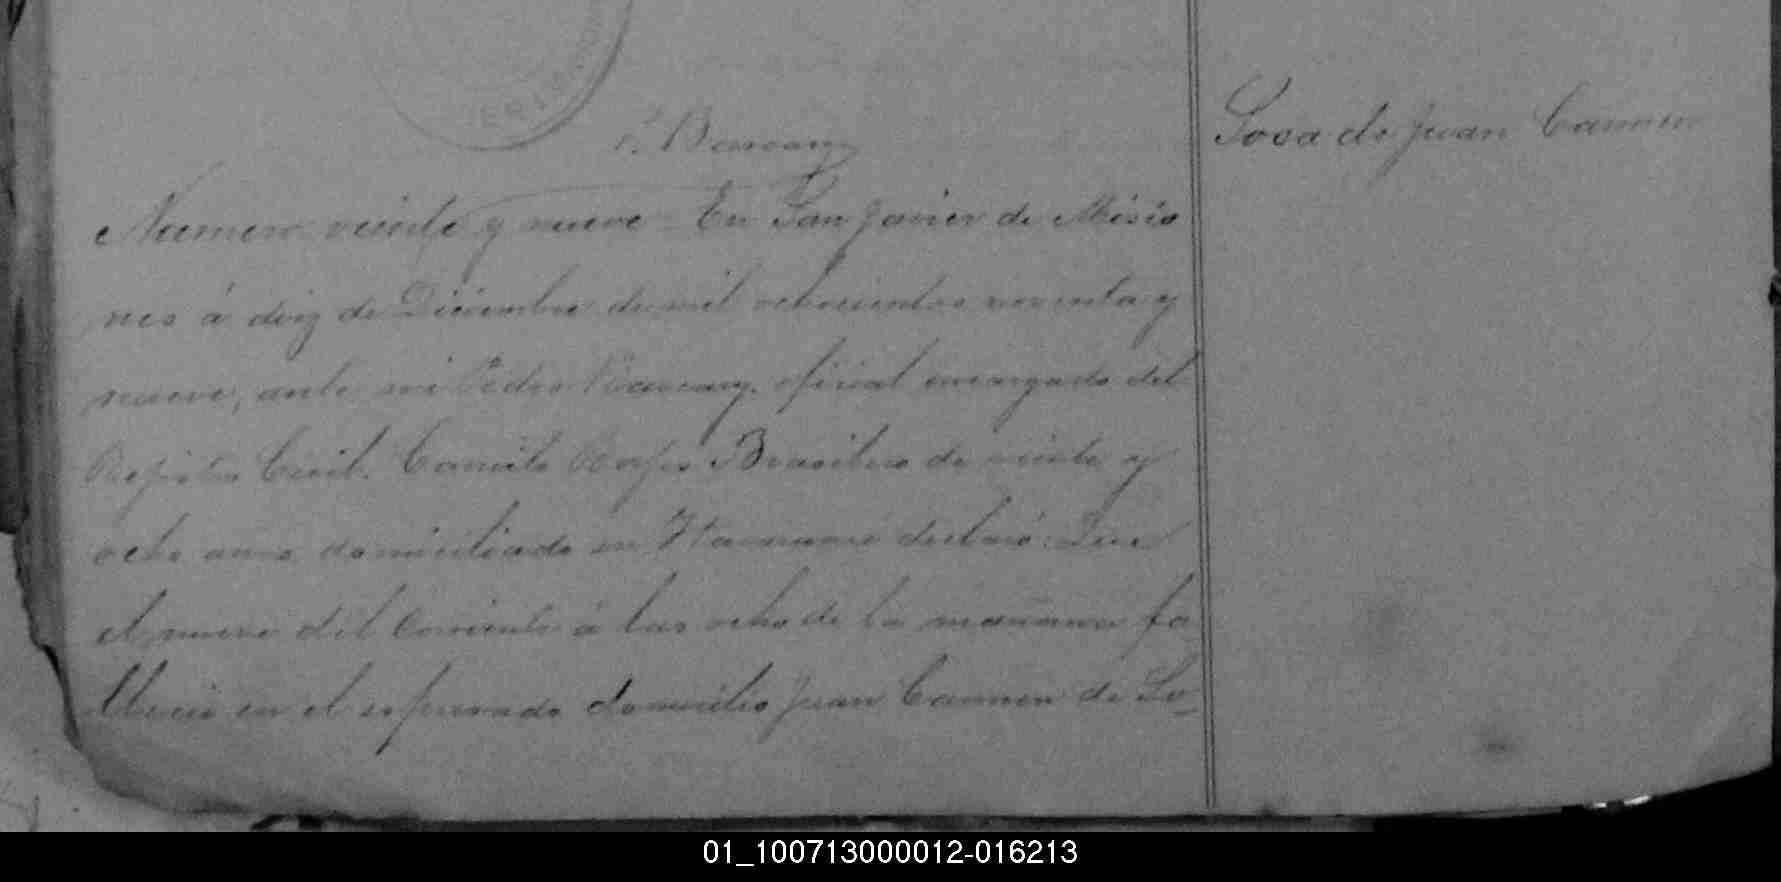 P. Bascary
Sosa de Juan Carmen
Numero veinte y nueve - En San Javier de Misio
nes á diez de Diciembre de mil ochocientos noventa y
nueve, ante mi Pedro Bascary, oficial encargado del
Registro Civil. Camilo Brasilero de veinte y
ocho anos domiciliado en declaró: Que
el nueve del corriente á las ocho de la mañana fa
lleció en el espresado domicilio Juan Carmen de So-
01_100713000012-016213